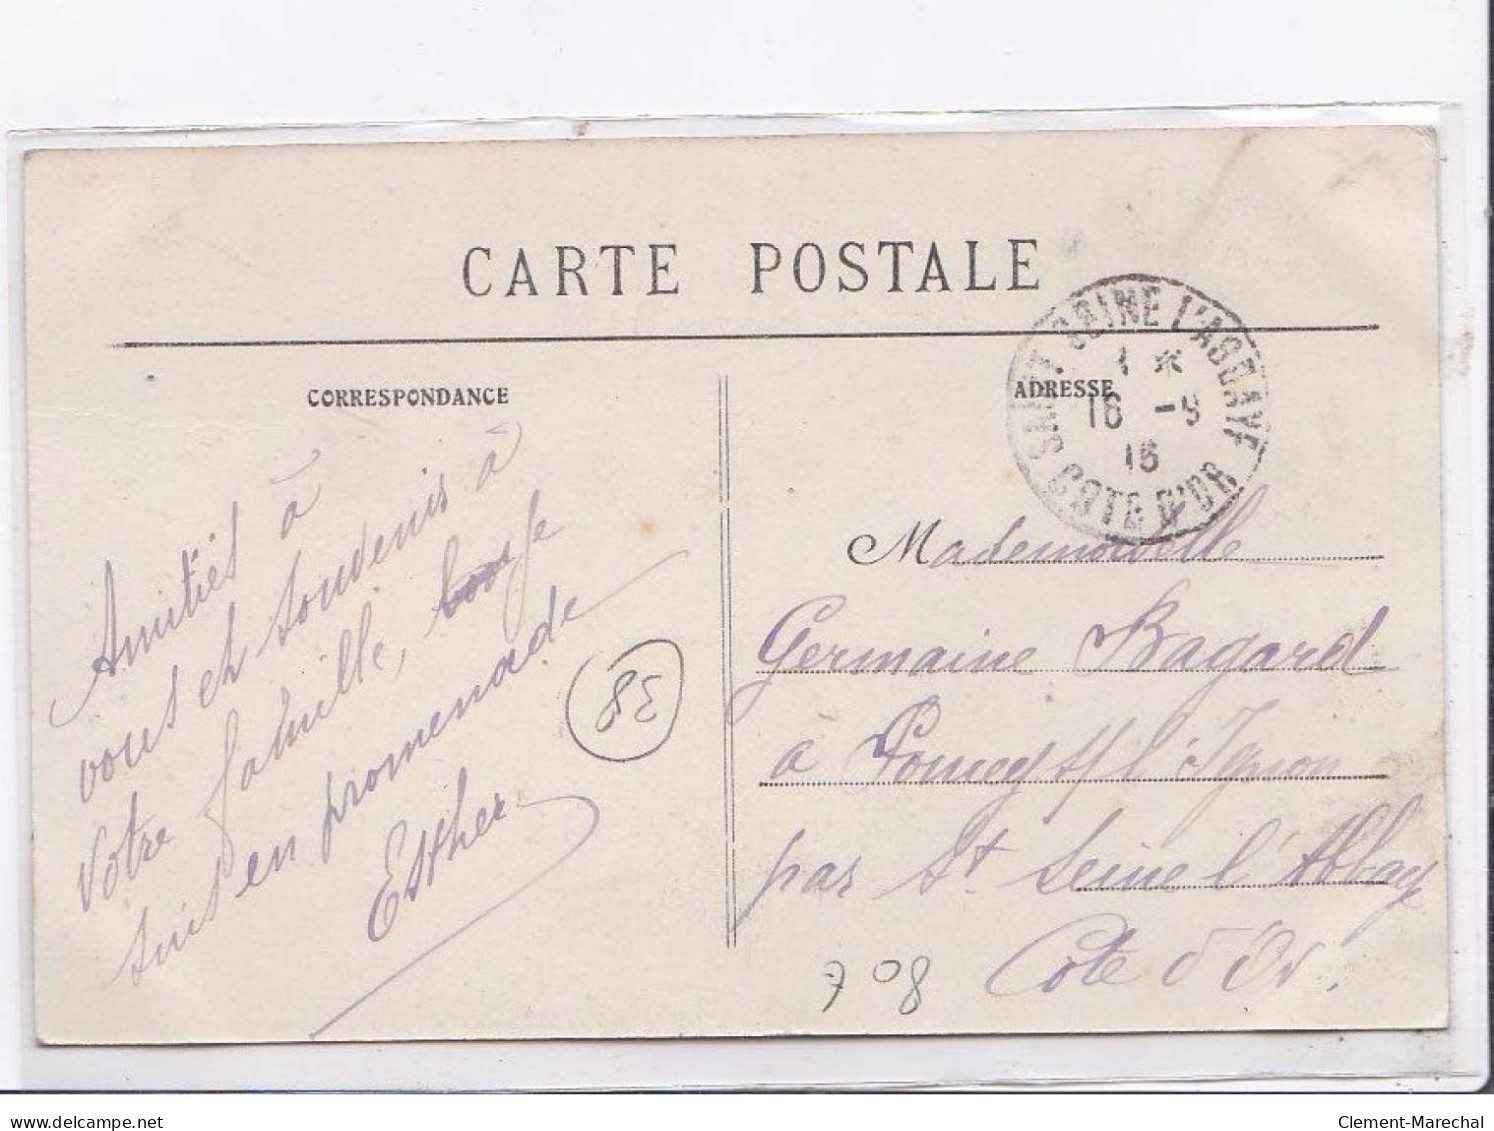 CARTE POSTALE
CORRESPONDANCE
ADRESSE
SAINT SEINE L'ABBAYE
16 -9
16
COTE D'OR
Amitiés à
vous et souvenis à
votre famille,
suis en promenade
Esther
Mademoiselle
Germaine Bagard
à Poncey s/ l'Ignon
par St Seine l'Abbay
Cote d'Or.
708
www.delcampe.net
Clement-Marechal